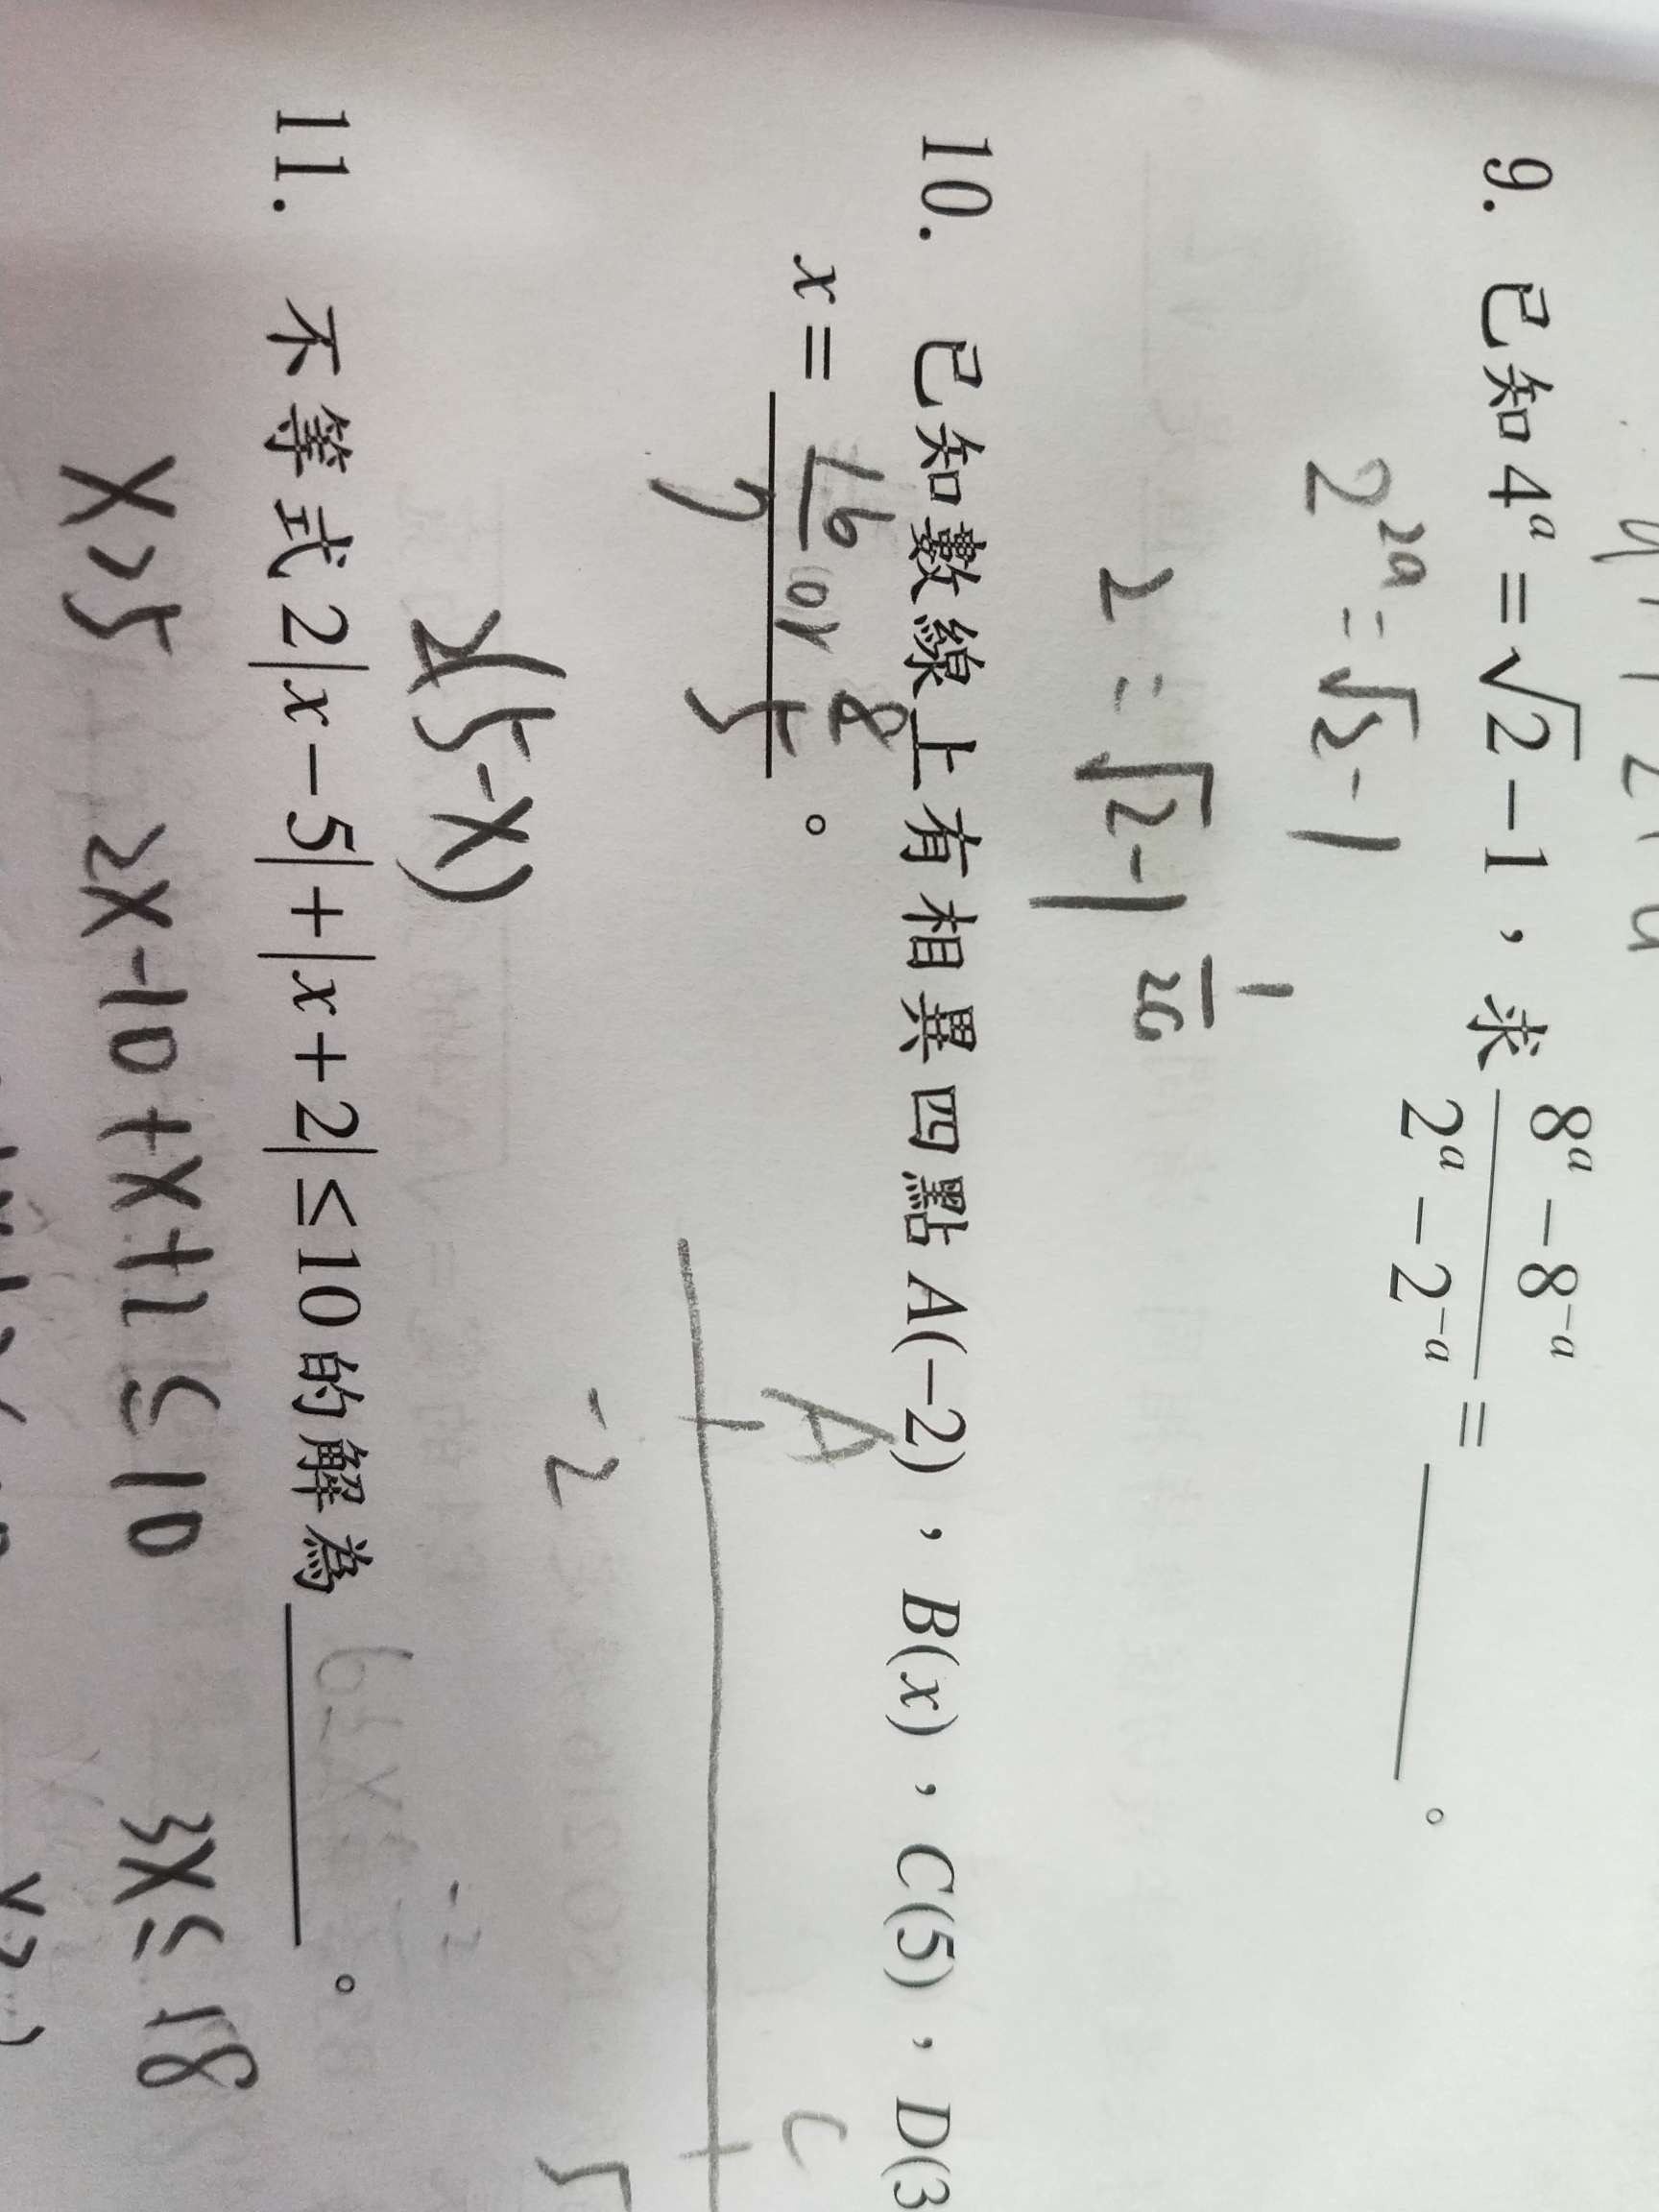 9. 已知 4ᵃ = √2 − 1，求 (8ᵃ − 8⁻ᵃ)/(2ᵃ − 2⁻ᵃ) = ______。
2²ᵃ = √2 - 1
2 = √2 - 1
1/2a
10. 已知數線上有相異四點 A(−2)，B(x)，C(5)，D(3
x = ______。
16/7 or 8/5
A
C
-2
5
11. 不等式 2|x − 5| + |x + 2| ≤ 10 的解為______。
2(5-x)
x>5
2x-10+x+2≤10
3x≤18